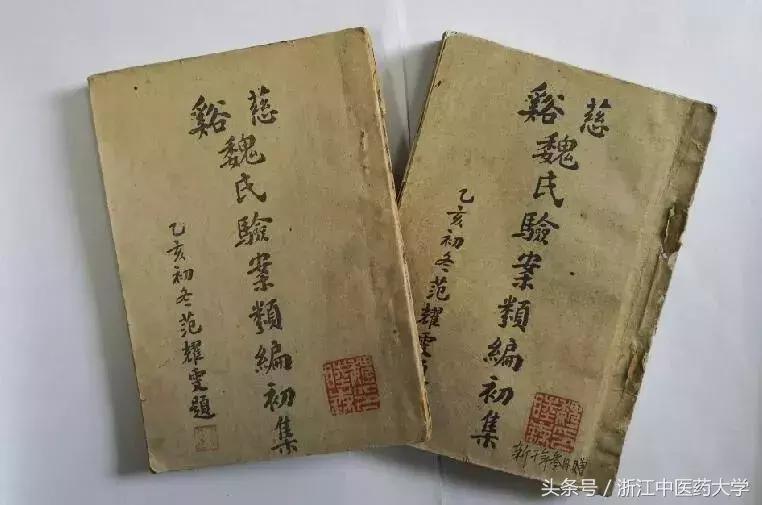 慈谿
魏氏驗案類編初集
乙亥初冬范耀雯題
慈谿
魏氏驗案類編初集
乙亥初冬范耀雯
头条号 / 浙江中医药大学